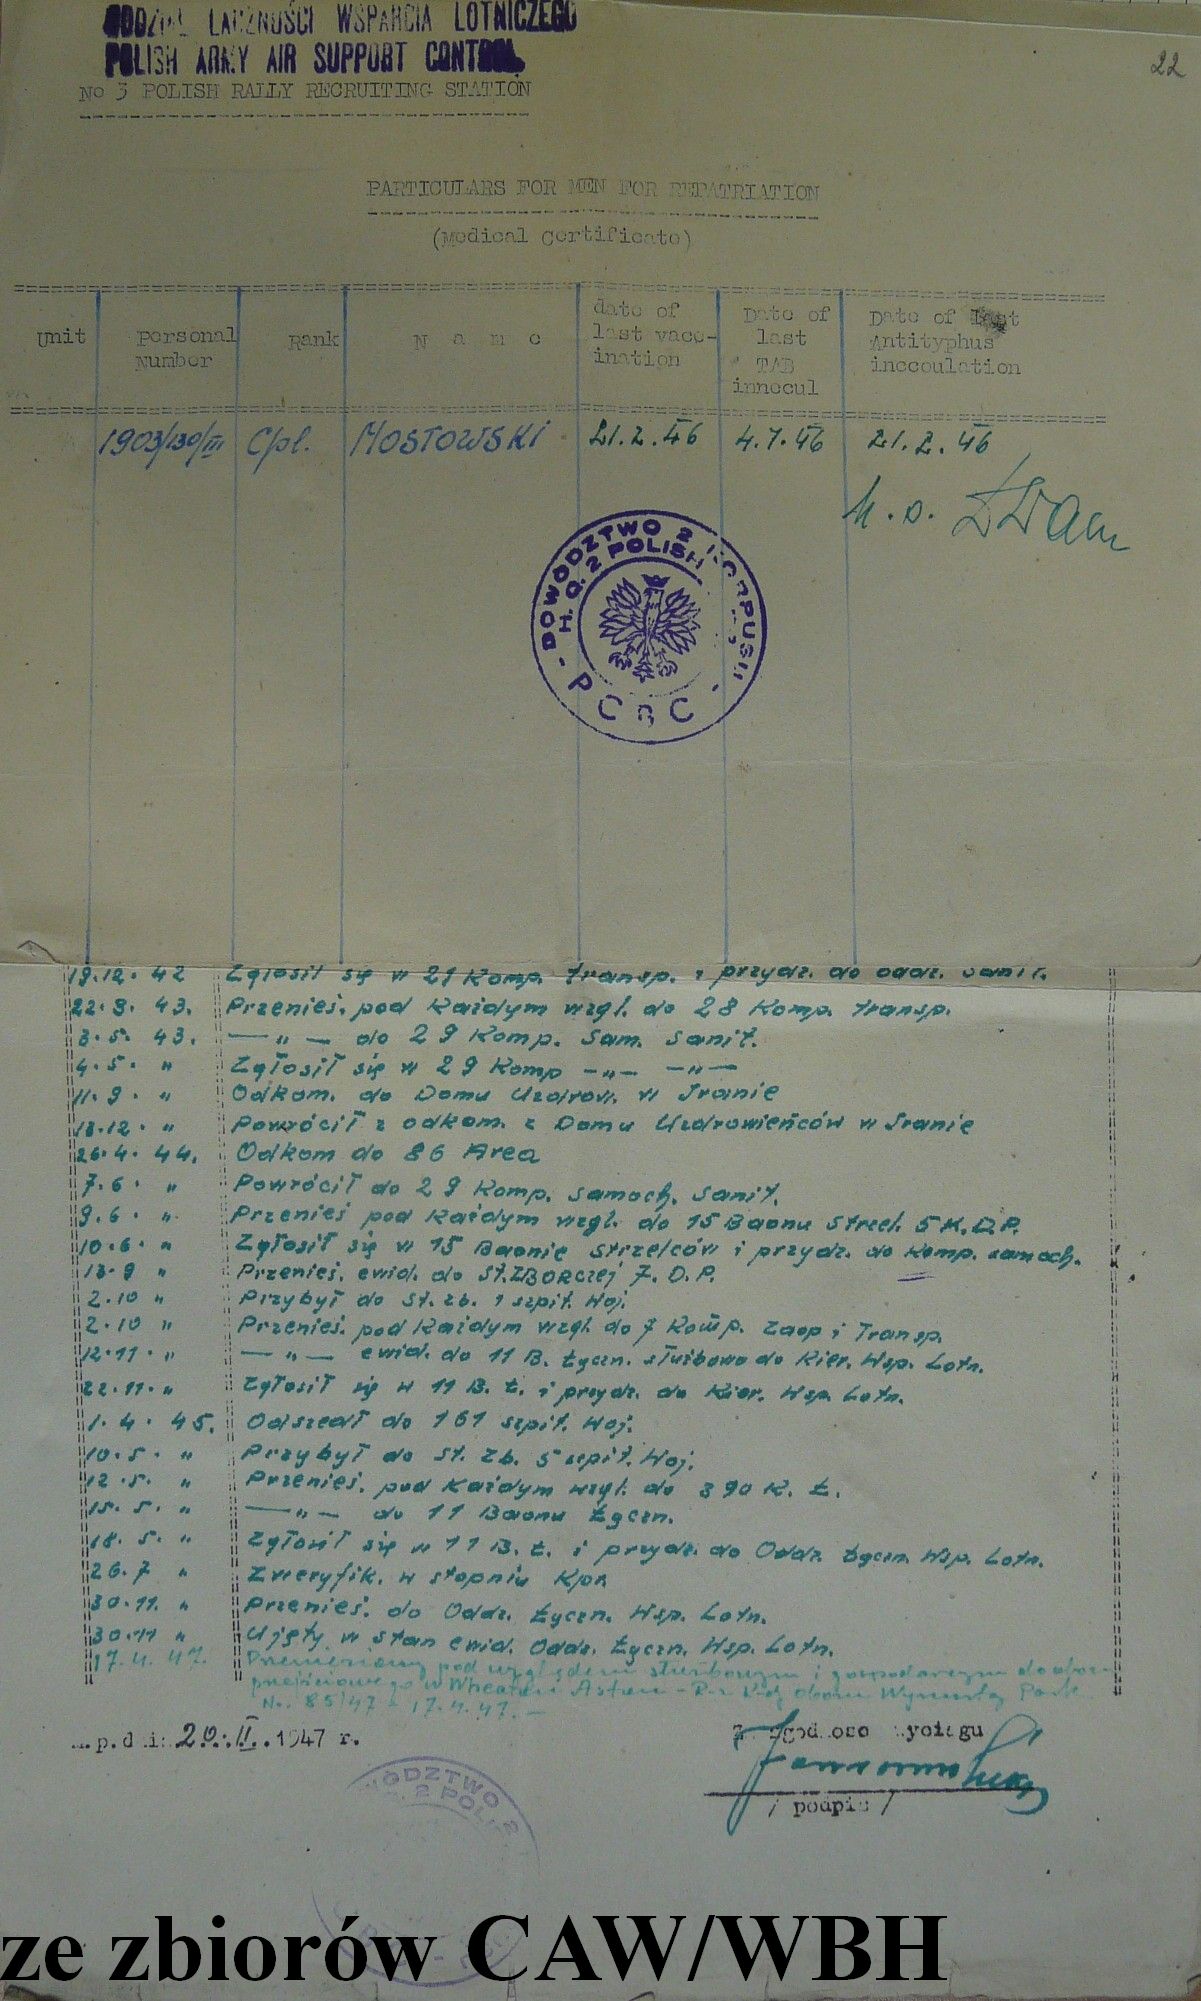 ODDZIAŁ ŁĄCZNOŚCI WSPARCIA LOTNICZEGO
POLISH ARMY AIR SUPPORT CONTROL
22
No 3 POLISH RALLY RECRUITING STATION
PARTICULARS FOR MEN FOR REPATRIATION
(Medical Certificate)
Unit Personal Number Rank N a m e date of last vacc-ination Date of last TAB innocul Date of last Antityphus inocoulation
1903/130/III C/pl. MOSTOWSKI 21.2.46 4.1.46 21.2.46
M.O.
DOWÓDZTWO 2 KORPUSU
H.Q. 2 POLISH
19.12. 42 Zgłosił się w 21 Komp. transp. i przydz. do oddz. sanit.
22.3. 43. Przenieś. pod każdym wzgl. do 28 Komp. transp.
3.5. 43. — „ — do 29 Komp. Sam. Sanit.
4.5. „ Zgłosił się w 29 Komp —„— —„—
11.9. „ Odkom. do Domu Uzdrow. w Iranie
13.12. „ Powrócił z odkom. z Domu Uzdrowieńców w Iranie
26.4. 44. Odkom do 86 Area
7.6. „ Powrócił do 29 Komp. samoch. sanit.
9.6. „ Przenieś pod każdym wzgl. do 15 Baonu Strzel. 5 K.D.P.
10.6. „ Zgłosił się w 15 Baonie strzelców i przydz. do komp. samoch.
13.9 „ Przenieś. ewid. do St. ZBORczej 7. D.P.
2.10 „ Przybył do st. zb. 1 szpit. Woj.
2.10 „ Przenieś. pod każdym wzgl. do 7 Komp. Zaop i Transp.
12.11. „ — „ — ewid. do 11 B. Łączn. służbowo do Kier. Wsp. Lotn.
22.11. „ Zgłosił się w 11 B. Ł. i przydz. do Kier. Wsp. Lotn.
1.4. 45. Odszedł do 161 szpit. Woj.
10.5. „ Przybył do st. zb. 5 szpit. Woj.
12.5. „ Przenieś. pod każdym wzgl. do 390 K. Ł.
15.5. „ — „ — do 11 Baonu Łączn.
18.5. „ Zgłosił się w 11 B. Ł. i przydz. do Oddz. Łączn. Wsp. Lotn.
26.7 „ Zweryfik. w stopniu Kpr.
30.11. „ Przenieś. do Oddz. Łączn. Wsp. Lotn.
30.11 „ Ujęty w stan ewid. Oddz. Łączn. Wsp. Lotn.
17.4. 47. Przeniesiony pod względem służbowym i gospodarczym do obozu
przejściowego w Wheaton Aston
No. 85/47 - 17.4.47. —
m.p. dnia 20.II.1947 r.
Za zgodność wyciągu
/ podpis /
ze zbiorów CAW/WBH